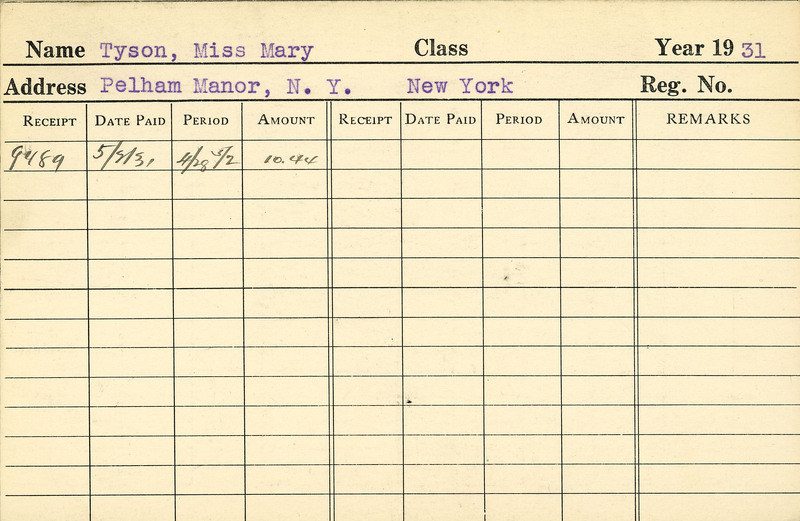 Name Tyson, Miss Mary Class Year 19 31
Address Pelham Manor, N. Y. New York Reg. No.
RECEIPT DATE PAID PERIOD AMOUNT RECEIPT DATE PAID PERIOD AMOUNT REMARKS
9489 4/28 5/2 10.44